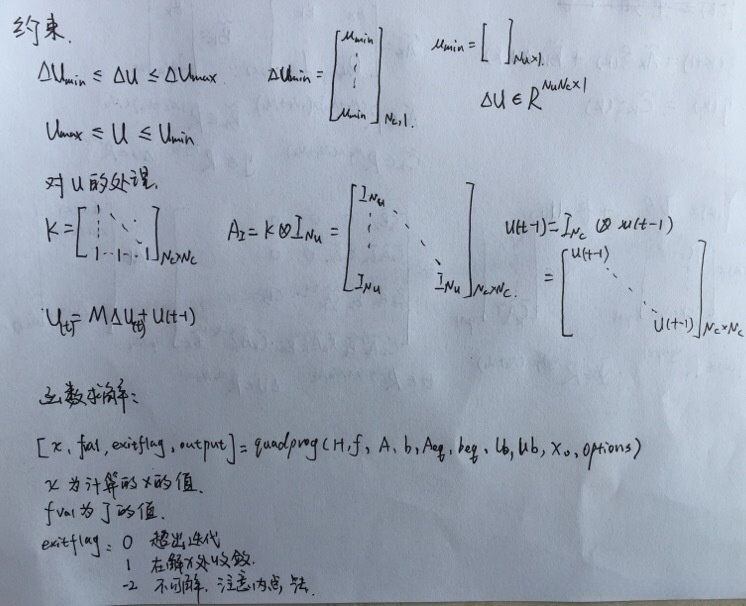 约束.
ΔUmin ≤ ΔU ≤ ΔUmax ΔUmin = [umin ⋮ umin]Nc,1. umin = [ ]Nu×1.
ΔU ∈ R^{NuNc×1}
Umax ≤ U ≤ Umin
对U的处理.
K = [1 ⋱ 1 ··· 1]Nc×Nc AI = K⊗INu = [INu ⋮ ⋱ INu INu]Nc×Nc. U(t-1) = INc ⊗ u(t-1)
= [u(t-1) ⋱ u(t-1)]Nc×Nc
U(t) = MΔU(t) + U(t-1)
函数求解:
[x, fval, exitflag, output] = quadprog(H, f, A, b, Aeq, beq, lb, ub, x0, options)
x 为计算的x的值.
fval为J的值.
exitflag: 0 超出迭代
1 在解x处收敛.
-2 不可解. 注意内点法.